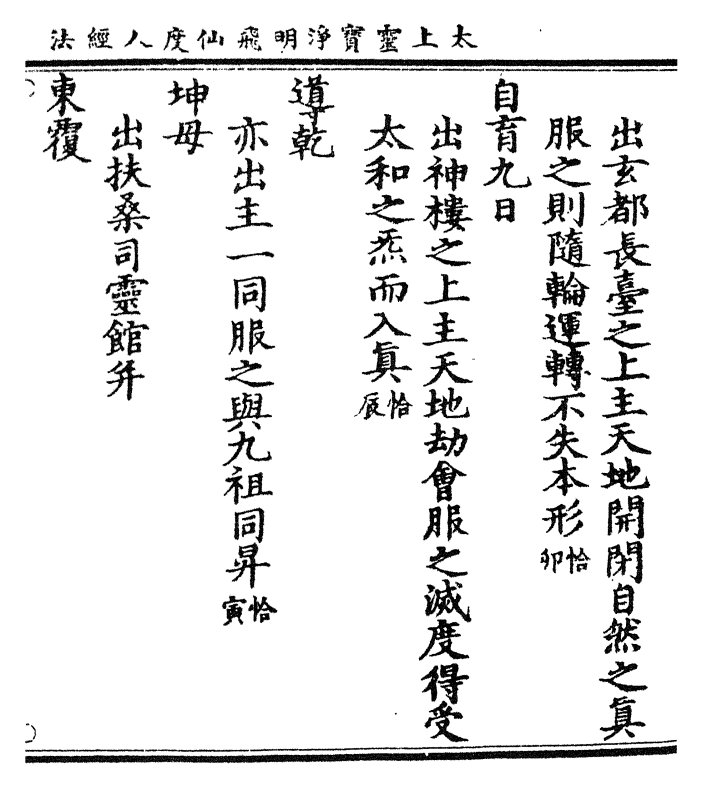 太上靈寶淨明飛仙度人經法
出玄都長臺之上主天地開閉自然之眞
服之則隨輪運轉不失本形恰卯
自育九日
出神樓之上主天地劫會服之滅度得受
太和之炁而入眞恰辰
導乾
亦出主一同服之與九祖同昇恰寅
坤母
出扶桑司靈館并
東覆